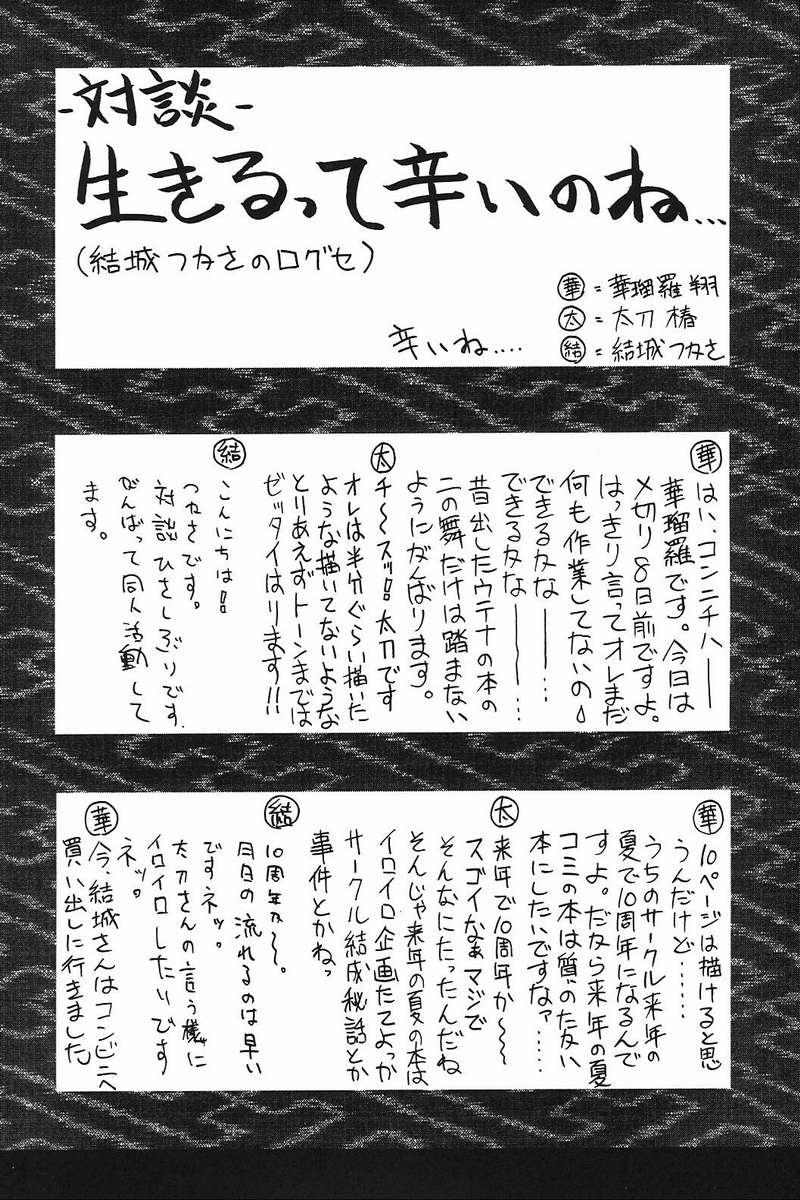 -対談-
生きるって辛いのね…
(結城つかさのログセ)
華=華瑠羅翔
太=太刀椿
結=結城つかさ
辛いね….
華
はい、コンニチハ――
華瑠羅です。今日は
〆切り8日前ですよ。
はっきり言ってオレまだ
何も作業してないの
できるかな――…
できるかな――…
昔出したウテナの本の
二の舞だけは踏まない
ようにがんばります。
太
チ～スッ!!太刀です
オレは半分ぐらい描いた
ような描いてないような
とりあえずトーンまでは
ゼッタイはります!!
結
こんにちは!!
つかさです。
対談ひさしぶりです.
がんばって同人活動して
ます。
華
10ページは描けると思
うんだけど……
うちのサークル来年の
夏で10周年になるんで
すよ。だから来年の夏
コミの本は質のたかい
本にしたいですなァ……
太
来年で10周年か～～
スゴイなぁマジで
そんなにたったんだね
そんじゃ来年の夏の本は
イロイロ企画たてよっか
サークル結成秘話とか
事件とかねっ
結
10周年か～。
月日の流れるのは早い
ですネッ。
太刀さんの言う様に
イロイロしたいです
ネッ。
華
今、結城さんはコンビニへ
買い出しに行きました